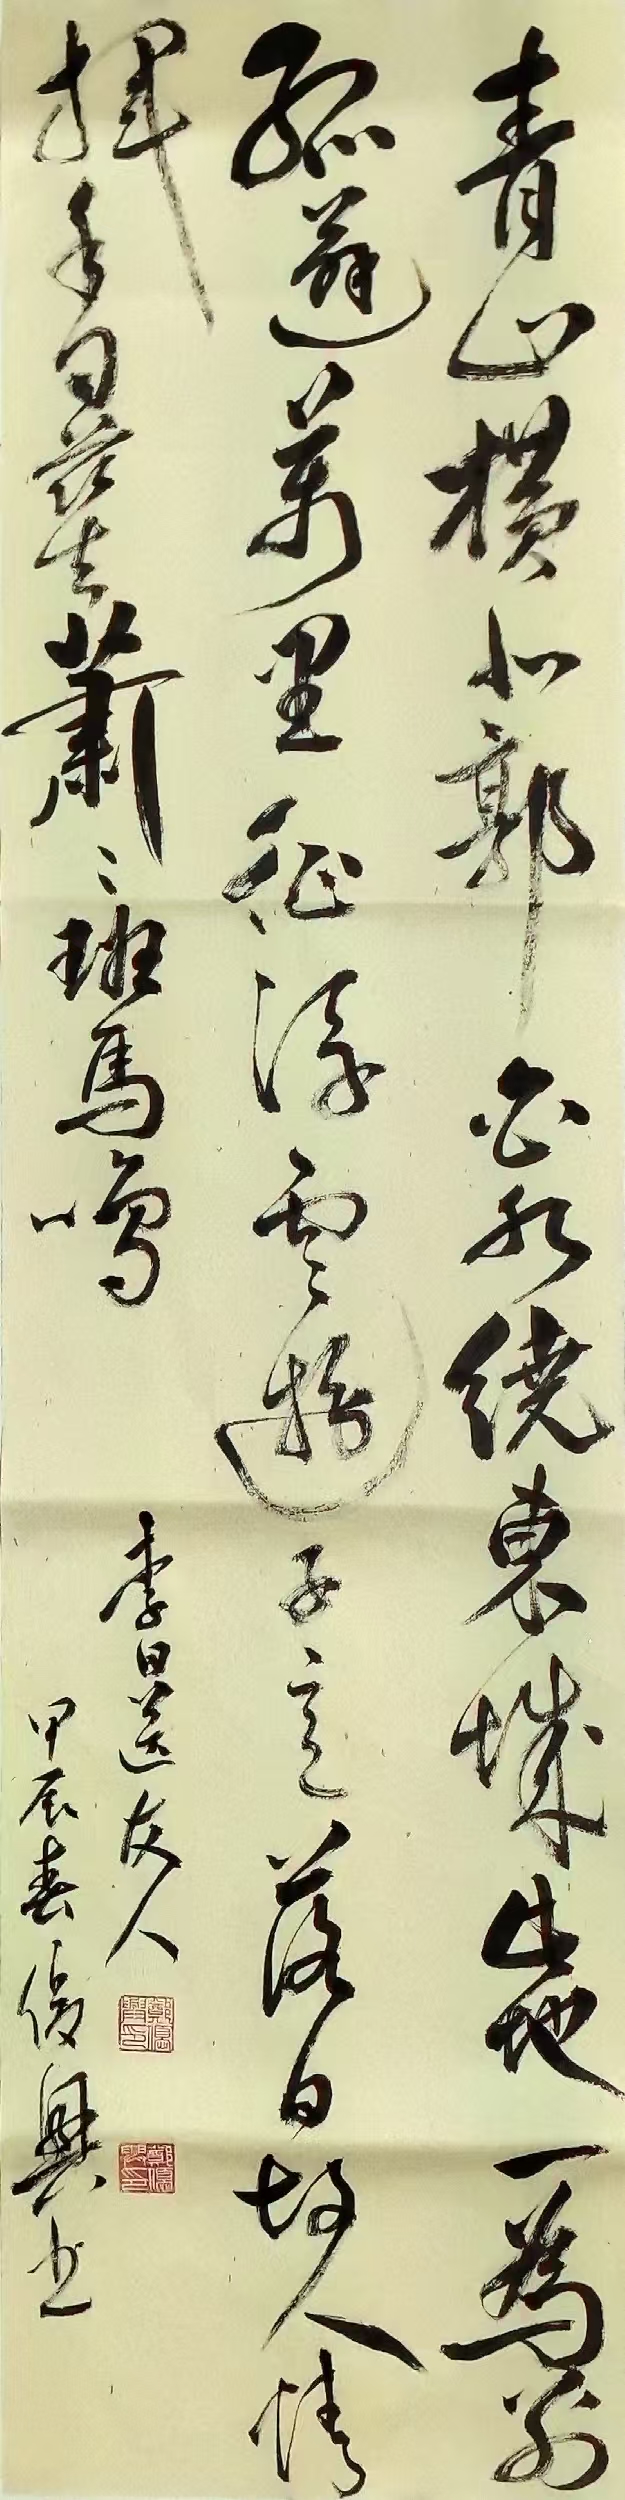 青山橫北郭白水繞東城此地一為別
孤蓬萬里征浮雲遊子意落日故人情
揮手自茲去蕭〻班馬鳴
李白送友人
甲辰春俊興书